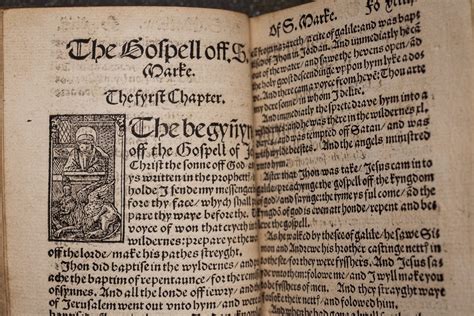 The Gospell off S.
Marke.
The fyrst Chapter.
The begynyn
off the Gospell of J
Christ the sonne off God/ as
ys written in the prophett/
holde J sende my messenger
fore thy face/ whych shall
pare thy waye before the.
voyce of won that cryeth in
wildernes: prepare ye the w
off the lorde/ make his pathes streyght.
Jhon did baptise in the wyldernes/ and
the baptim of repentaunce/ for the reme
off synnes. And all the londe off iewry/ and
of Jerusalem went out vnto hym/ and we
Of S. Marke.
nazareth/ a cite of galile: and was bap
of Jhon in Jordan. And immediatly he ca
off the water/ and sawe the hevens open/ and
the holy goost descendinge vppon hym lyke a do
And there cam a voyce from hevē: Thou arte
dere sonne/ in whom J delite.
And immediatly the sprete drave hym into a
wildernes/ and he was there in the wildernes xl.
and was tempted off Satan/ and was
And the angels ministred
After that Jhon was take/ Jesus cam in to
preachynge the gospell off the kyngdom
off god/ and sayinge the tyme ys full come/ and the
kyngdō of god is even at honde/ repent and be
the gospell.
As he walked by the see off galile/ he sawe Simon
and Andrew his brother castinge nett/ in
see/ for they were fysshers. And Jesus sa
vnto them: folowe me/ and J will make you
fysshers of men. And they straytwaye
their nett/ and folowed hym.
And when he had gone a lyttell